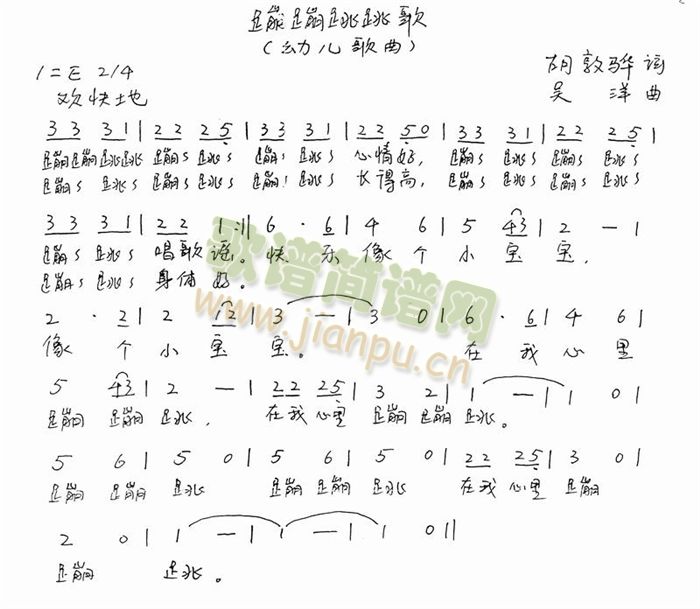 蹦蹦跳跳歌
(幼儿歌曲)
1=E 2/4
胡敦骅 词
欢快地
吴 洋 曲
3 3 3 1 | 2 2 2 5 | 3 3 3 1 | 2 2 5 0 | 3 3 3 1 | 2 2 2 5 |
蹦蹦跳跳 蹦〻 跳〻 蹦〻 跳〻 心情好, 蹦〻 跳〻 蹦〻 跳〻
蹦〻 跳〻 蹦〻 跳〻 蹦〻 跳〻 长得高, 蹦〻 跳〻 蹦〻 跳〻
3 3 3 1 | 2 2 1 :|| 6 · 6 | 4 6 | 5 4 3 | 2 — |
蹦〻 跳〻 唱歌谣。快 乐 像 个 小 宝 宝,
蹦〻 跳〻 身体好。
2 · 2 | 2 1 2 | 3 — | 3 0 | 6 · 6 | 4 6 |
像 个 小 宝 宝。 在 我 心 里
5 4 3 | 2 — | 2 2 2 5 | 3 2 | 1 — | 1 0 |
蹦 蹦 跳, 在我 心里 蹦 蹦 跳。
5 6 | 5 0 | 5 6 | 5 0 | 2 2 2 5 | 3 0 |
蹦 蹦 跳 蹦 蹦 跳 在我 心里 蹦
2 0 | 1 — | 1 — | 1 0 ||
蹦 跳。
歌谱简谱网
www.jianpu.cn